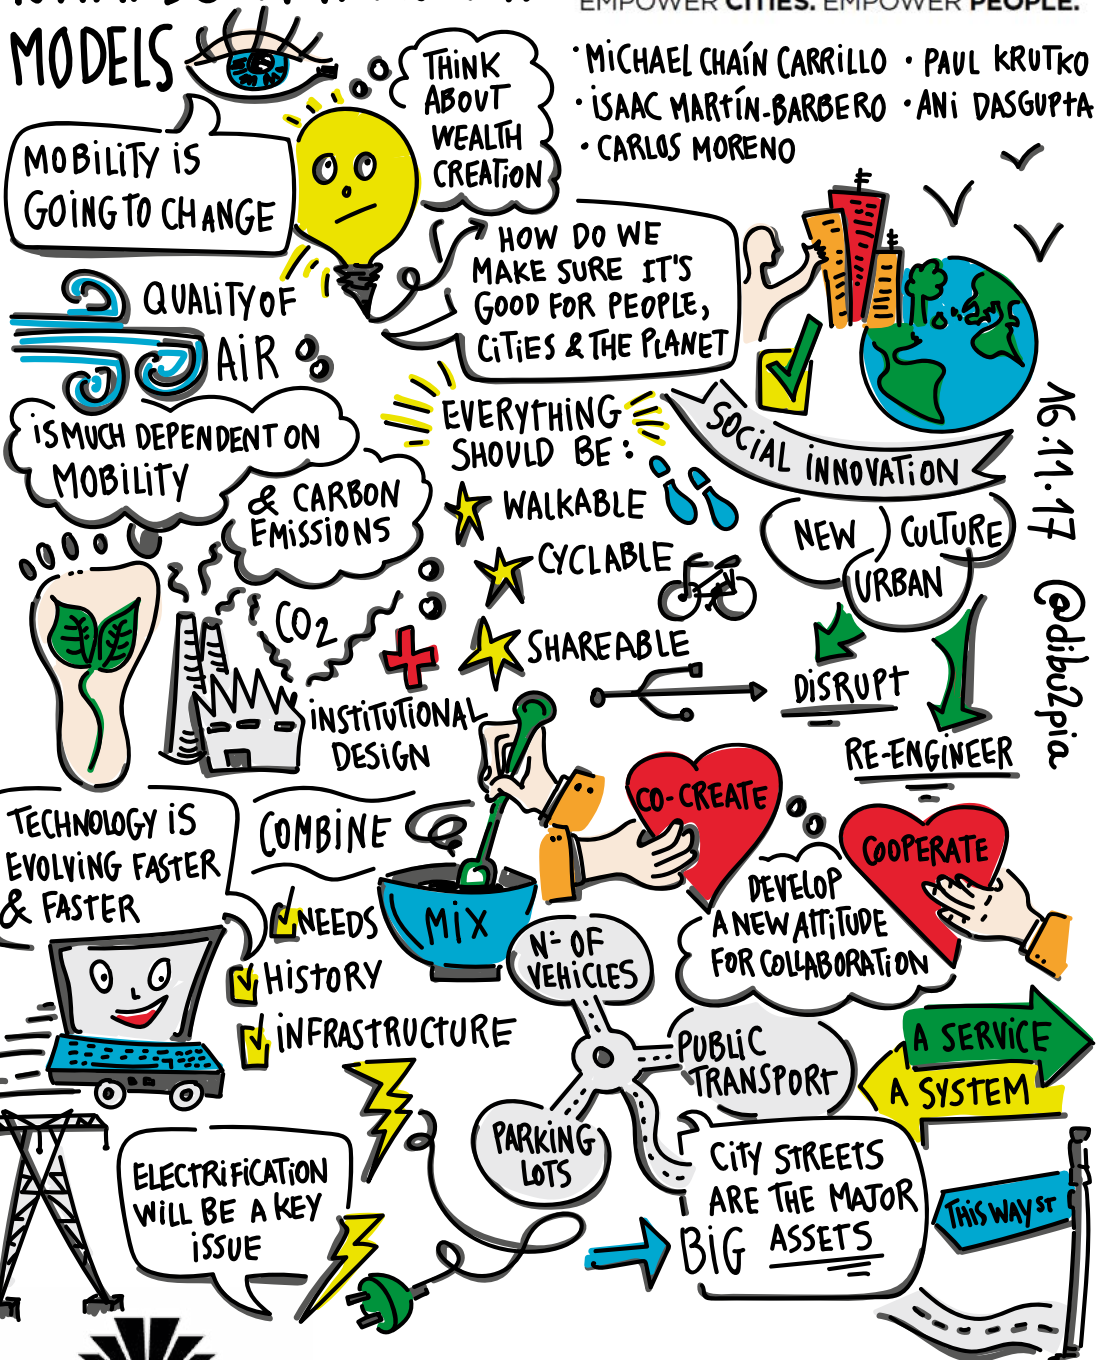 EMPOWER CITIES. EMPOWER PEOPLE.
MODELS
• MICHAEL CHAÍN CARRILLO • PAUL KRUTKO
• ISAAC MARTÍN-BARBERO • ANI DASGUPTA
• CARLOS MORENO
THINK
ABOUT
WEALTH
CREATION
MOBILITY IS
GOING TO CHANGE
HOW DO WE
MAKE SURE IT'S
GOOD FOR PEOPLE,
CITIES & THE PLANET
QUALITY OF
AIR
IS MUCH DEPENDENT ON
MOBILITY
& CARBON
EMISSIONS
CO2
EVERYTHING
SHOULD BE:
WALKABLE
CYCLABLE
SHAREABLE
SOCIAL INNOVATION
NEW
CULTURE
URBAN
DISRUPT
RE-ENGINEER
16.11.17 @dibu2pia
INSTITUTIONAL
DESIGN
TECHNOLOGY IS
EVOLVING FASTER
& FASTER
COMBINE
NEEDS
HISTORY
INFRASTRUCTURE
MIX
CO-CREATE
COOPERATE
DEVELOP
A NEW ATTITUDE
FOR COLLABORATION
Nº OF
VEHICLES
PUBLIC
TRANSPORT
PARKING
LOTS
A SERVICE
A SYSTEM
ELECTRIFICATION
WILL BE A KEY
ISSUE
CITY STREETS
ARE THE MAJOR
BIG ASSETS
THIS WAY ST